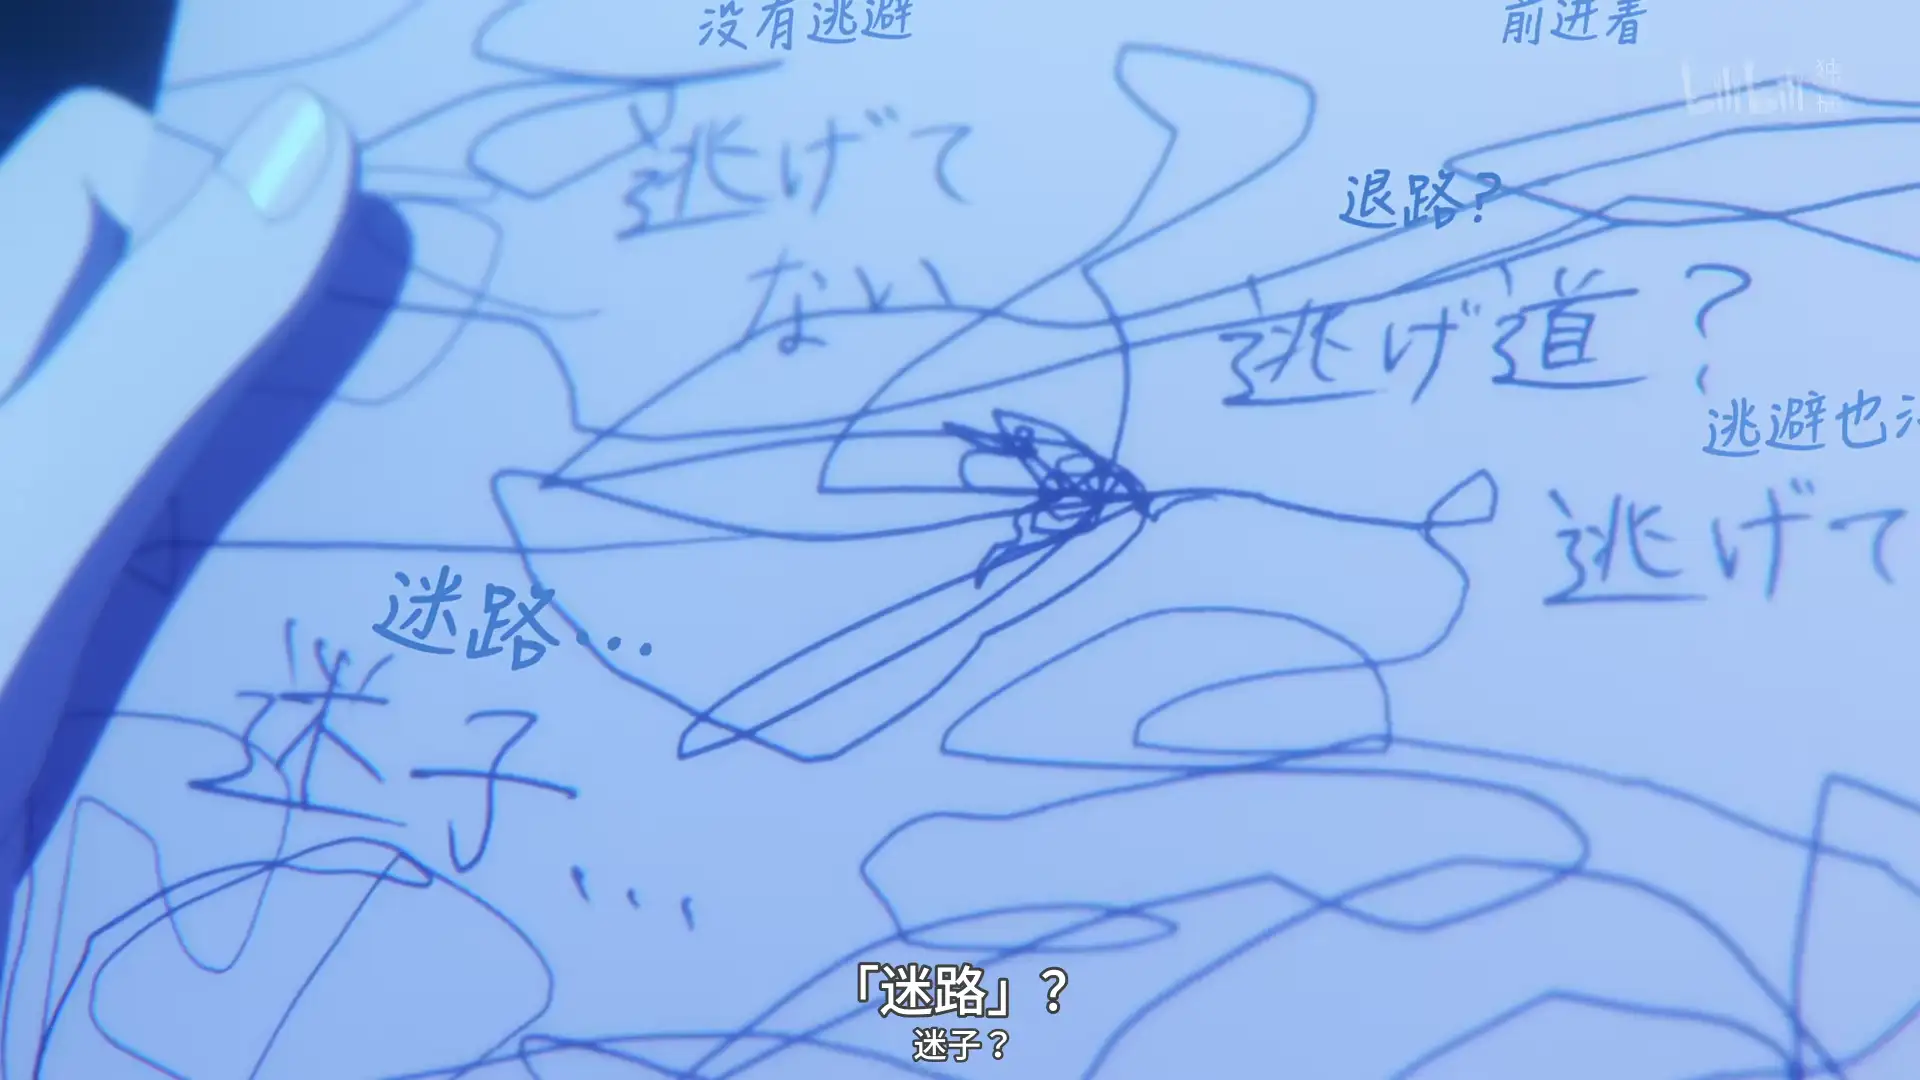 没有逃避
前进着
bilibili
逃げて
ない
退路?
逃げ道?
逃避也
逃げて
迷路...
迷子...
「迷路」?
迷子?